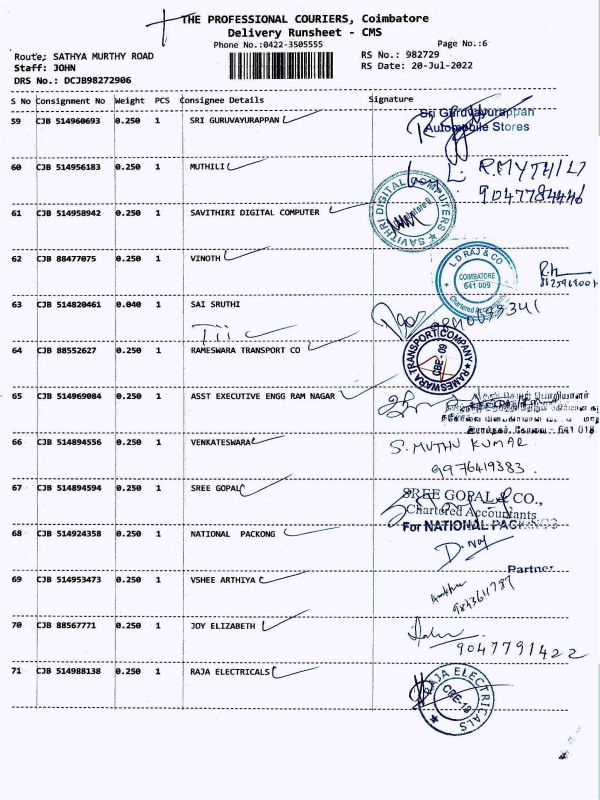 THE PROFESSIONAL COURIERS, Coimbatore
Delivery Runsheet - CMS
Phone No.:0422-3505555
Page No.:6
Route: SATHYA MURTHY ROAD
RS No.: 982729
Staff: JOHN
RS Date: 20-Jul-2022
DRS No.: DCJB98272906
S No Consignment No Weight PCS Consignee Details Signature
59 CJB 514960693 0.250 1 SRI GURUVAYURAPPAN
Sri Guruvayurappan
Automobile Stores
60 CJB 514956183 0.250 1 MUTHILI
R.MYTHILI
9047784446
61 CJB 514958942 0.250 1 SAVITHIRI DIGITAL COMPUTER
SAVITHRI DIGITAL COMPUTERS
62 CJB 88477075 0.250 1 VINOTH
L D RAJ & CO
COIMBATORE
641 009
Chartered Accountants
63 CJB 514820461 0.040 1 SAI SRUTHI
64 CJB 88552627 0.250 1 RAMESWARA TRANSPORT CO
RAMESWARA TRANSPORT COMPANY
CBE-09
65 CJB 514969084 0.250 1 ASST EXECUTIVE ENGG RAM NAGAR
66 CJB 514894556 0.250 1 VENKATESWARA
S. MUTHU KUMAR
9976419383.
67 CJB 514894594 0.250 1 SREE GOPAL
SREE GOPAL & CO.,
Chartered Accountants
68 CJB 514924358 0.250 1 NATIONAL PACKONG
For NATIONAL PACKINGS
Partner
69 CJB 514953473 0.250 1 VSHEE ARTHIYA
9843611787
70 CJB 88567771 0.250 1 JOY ELIZABETH
9047791422
71 CJB 514988138 0.250 1 RAJA ELECTRICALS
RAJA ELECTRICALS
CBE-18